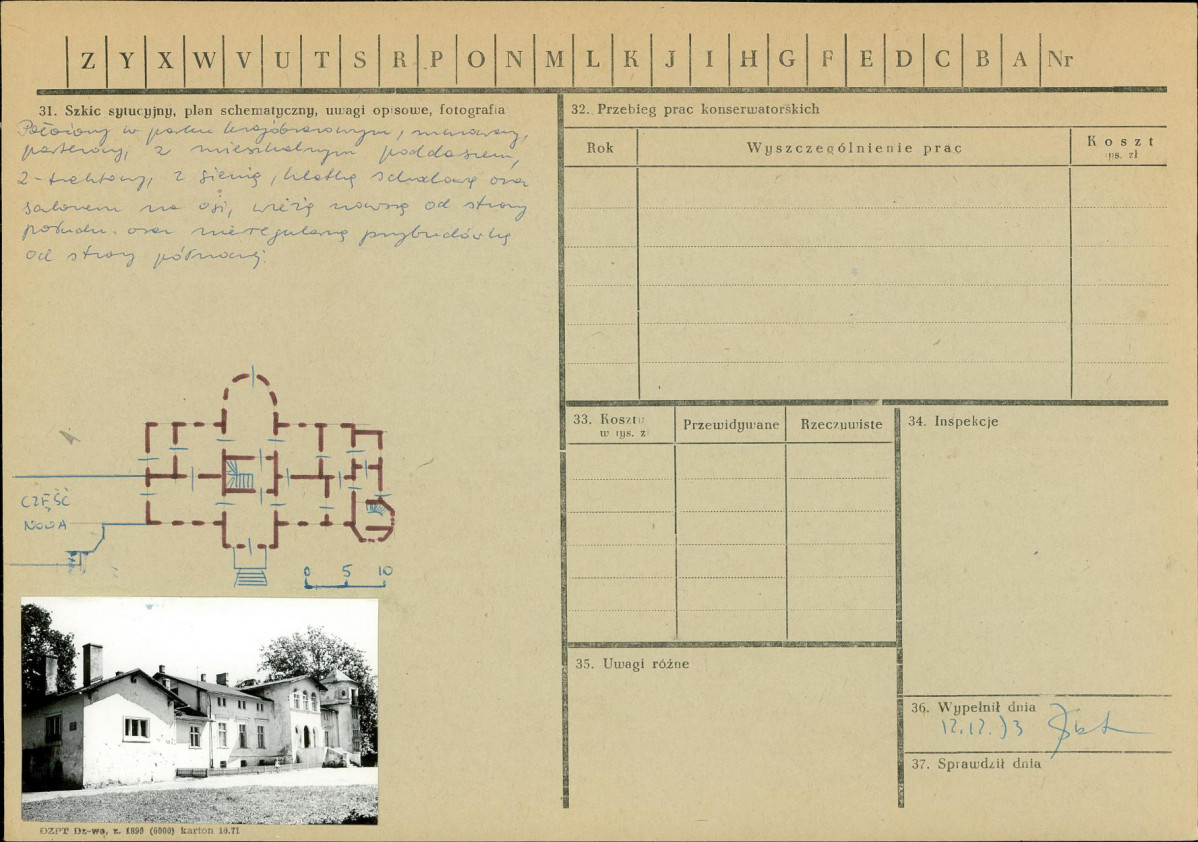 Z Y X W V U T S R P O N M L K J I H G F E D C B A Nr
31. Szkic sytucyjny, plan schematyczny, uwagi opisowe, fotografia
Położony w parku krajobrazowym, murowany,
parterowy, z mieszkalnym poddaszem,
2-traktowy, z sienią, klatką schodową oraz
salonem na osi, wieżą nowszą od strony
połudn. oraz nieregularną przybudówką
od strony północnej.
CZĘŚĆ
NOWA
0 5 10
OZPT Dz-wo, z. 1890 (6000) karton 10.71
32. Przebieg prac konserwatorskich
Rok
Wyszczególnienie prac
Koszt
tys. zł
33. Koszty
w tys. zł
Przewidywane
Rzeczywiste
34. Inspekcje
35. Uwagi różne
36. Wypełnił dnia
12.12.73
37. Sprawdził dnia